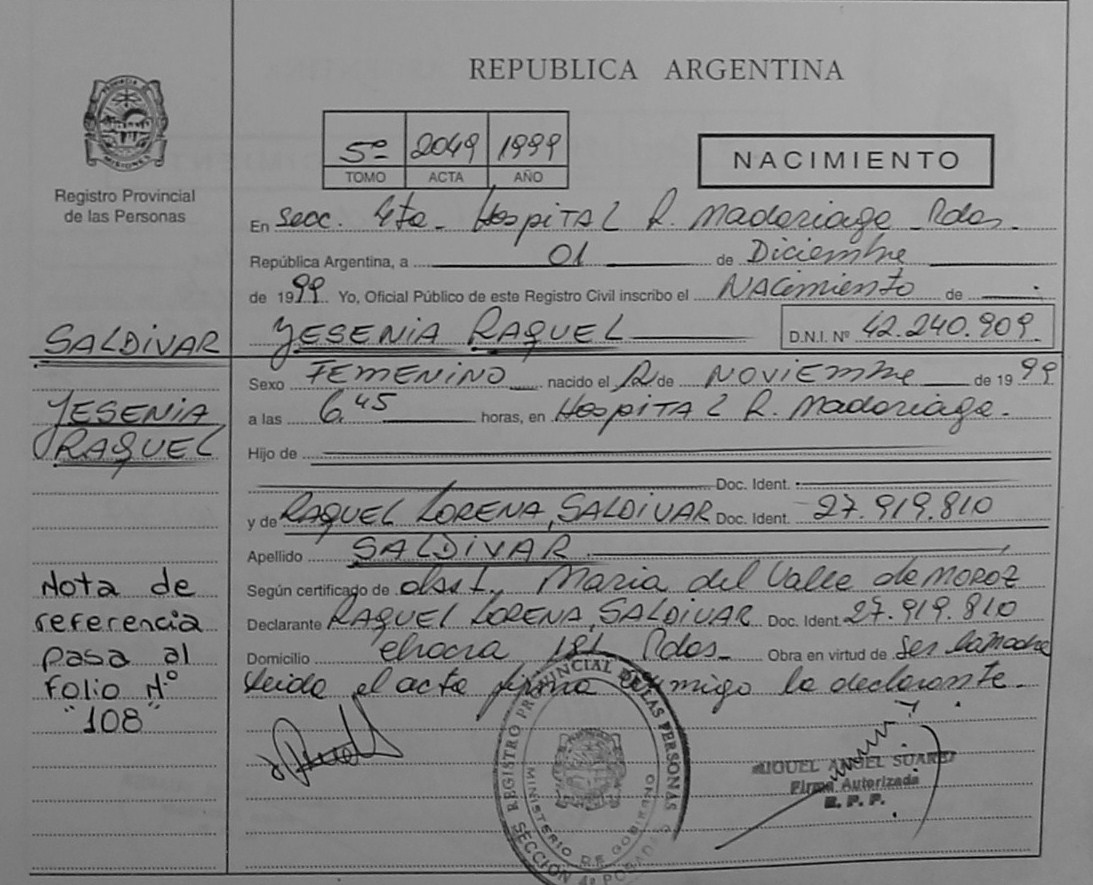 REPUBLICA ARGENTINA
PROVINCIA DE MISIONES
Registro Provincial
de las Personas
5º 2049 1999
TOMO ACTA AÑO
NACIMIENTO
En Secc. 4ta. Hospital R. Madariaga Pdas.
República Argentina, a 01 de Diciembre
de 1999 Yo, Oficial Público de este Registro Civil inscribo el NAcimiento de
SALDIVAR
YESENIA RAQUEL
D.N.I. Nº 42.240.909
Sexo FEMENINO nacido el 12 de NOVIEmbre de 1999
YESENIA
RAQUEL
a las 6.45 horas, en HospiTAL R. Madariaga.
Hijo de
Doc. Ident.
y de RAQUEL LORENA, SALDIVAR Doc. Ident. 27.919.810
Apellido SALDIVAR
Nota de
referencia
pasa al
folio Nº
"108"
Según certificado de obst. Maria del Valle de MOROZ
Declarante RAQUEL LORENA, SALDIVAR Doc. Ident. 27.919.810
Domicilio chacra 181 Pdas. Obra en virtud de Ser la Madre
Leida el acta firma conmigo la declarante.
REGISTRO PROVINCIAL DE LAS PERSONAS
MINISTERIO DE GOBIERNO
SECCION 4ª POSADAS
MIGUEL ANGEL SUAREZ
Firma Autorizada
R. P. P.